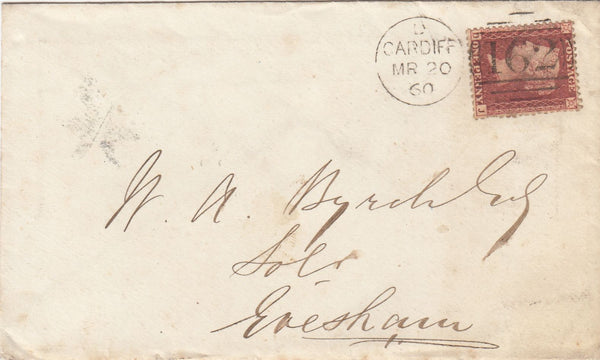 D
CARDIFF
MR 20
60
162
POSTAGE
ONE PENNY
J
W. A. Byrch Esq
Solr
Evesham